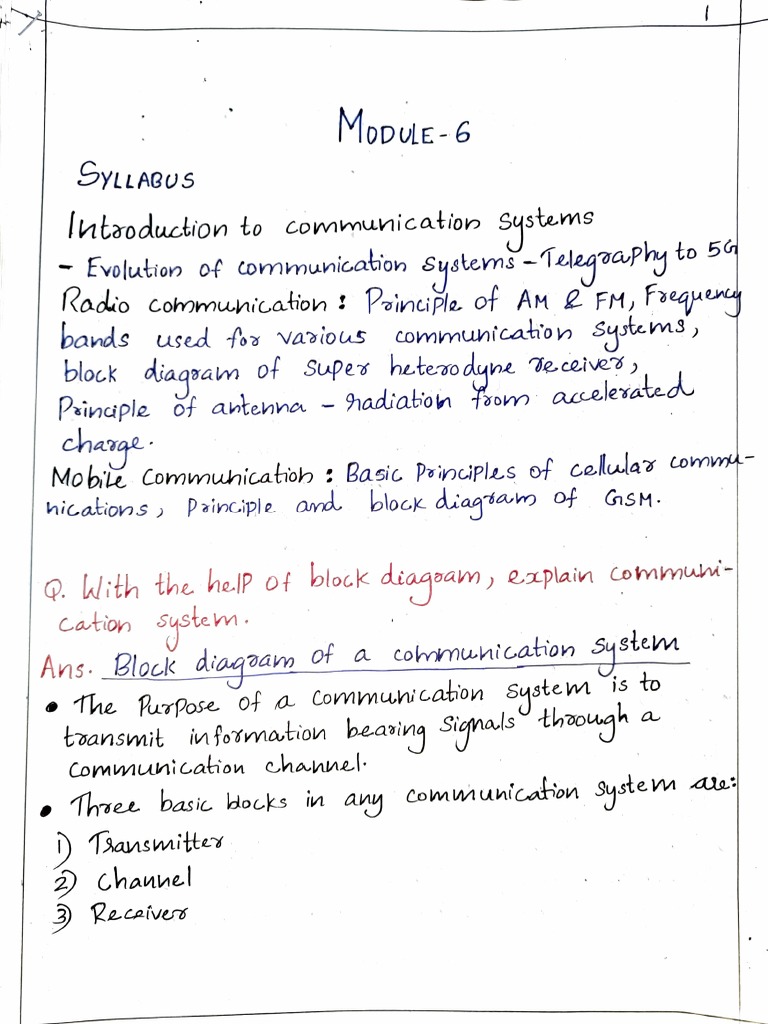 1
MODULE-6
SYLLABUS
Introduction to communication systems
- Evolution of communication systems - Telegraphy to 5G
Radio communication : Principle of AM & FM, Frequency
bands used for various communication systems,
block diagram of super heterodyne receiver,
Principle of antenna - radiation from accelerated
charge.
Mobile Communication : Basic Principles of cellular commu-
nications, Principle and block diagram of GSM.
Q. With the help of block diagram, explain communi-
cation system.
Ans. Block diagram of a communication system
• The Purpose of a communication system is to
transmit information bearing signals through a
communication channel.
• Three basic blocks in any communication system are:
1) Transmitter
2) Channel
3) Receiver